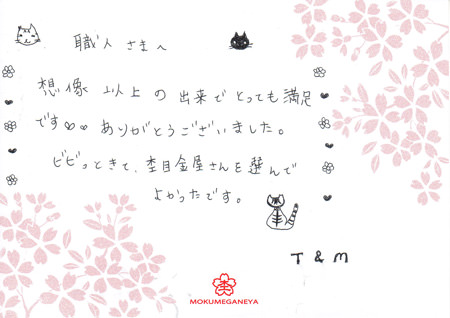 職人さまへ
想像以上の出来でとっても満足
です♡♡ ありがとうございました。
ビビっときて、杢目金屋さんを選んで
よかったです。
T & M
MOKUMEGANEYA